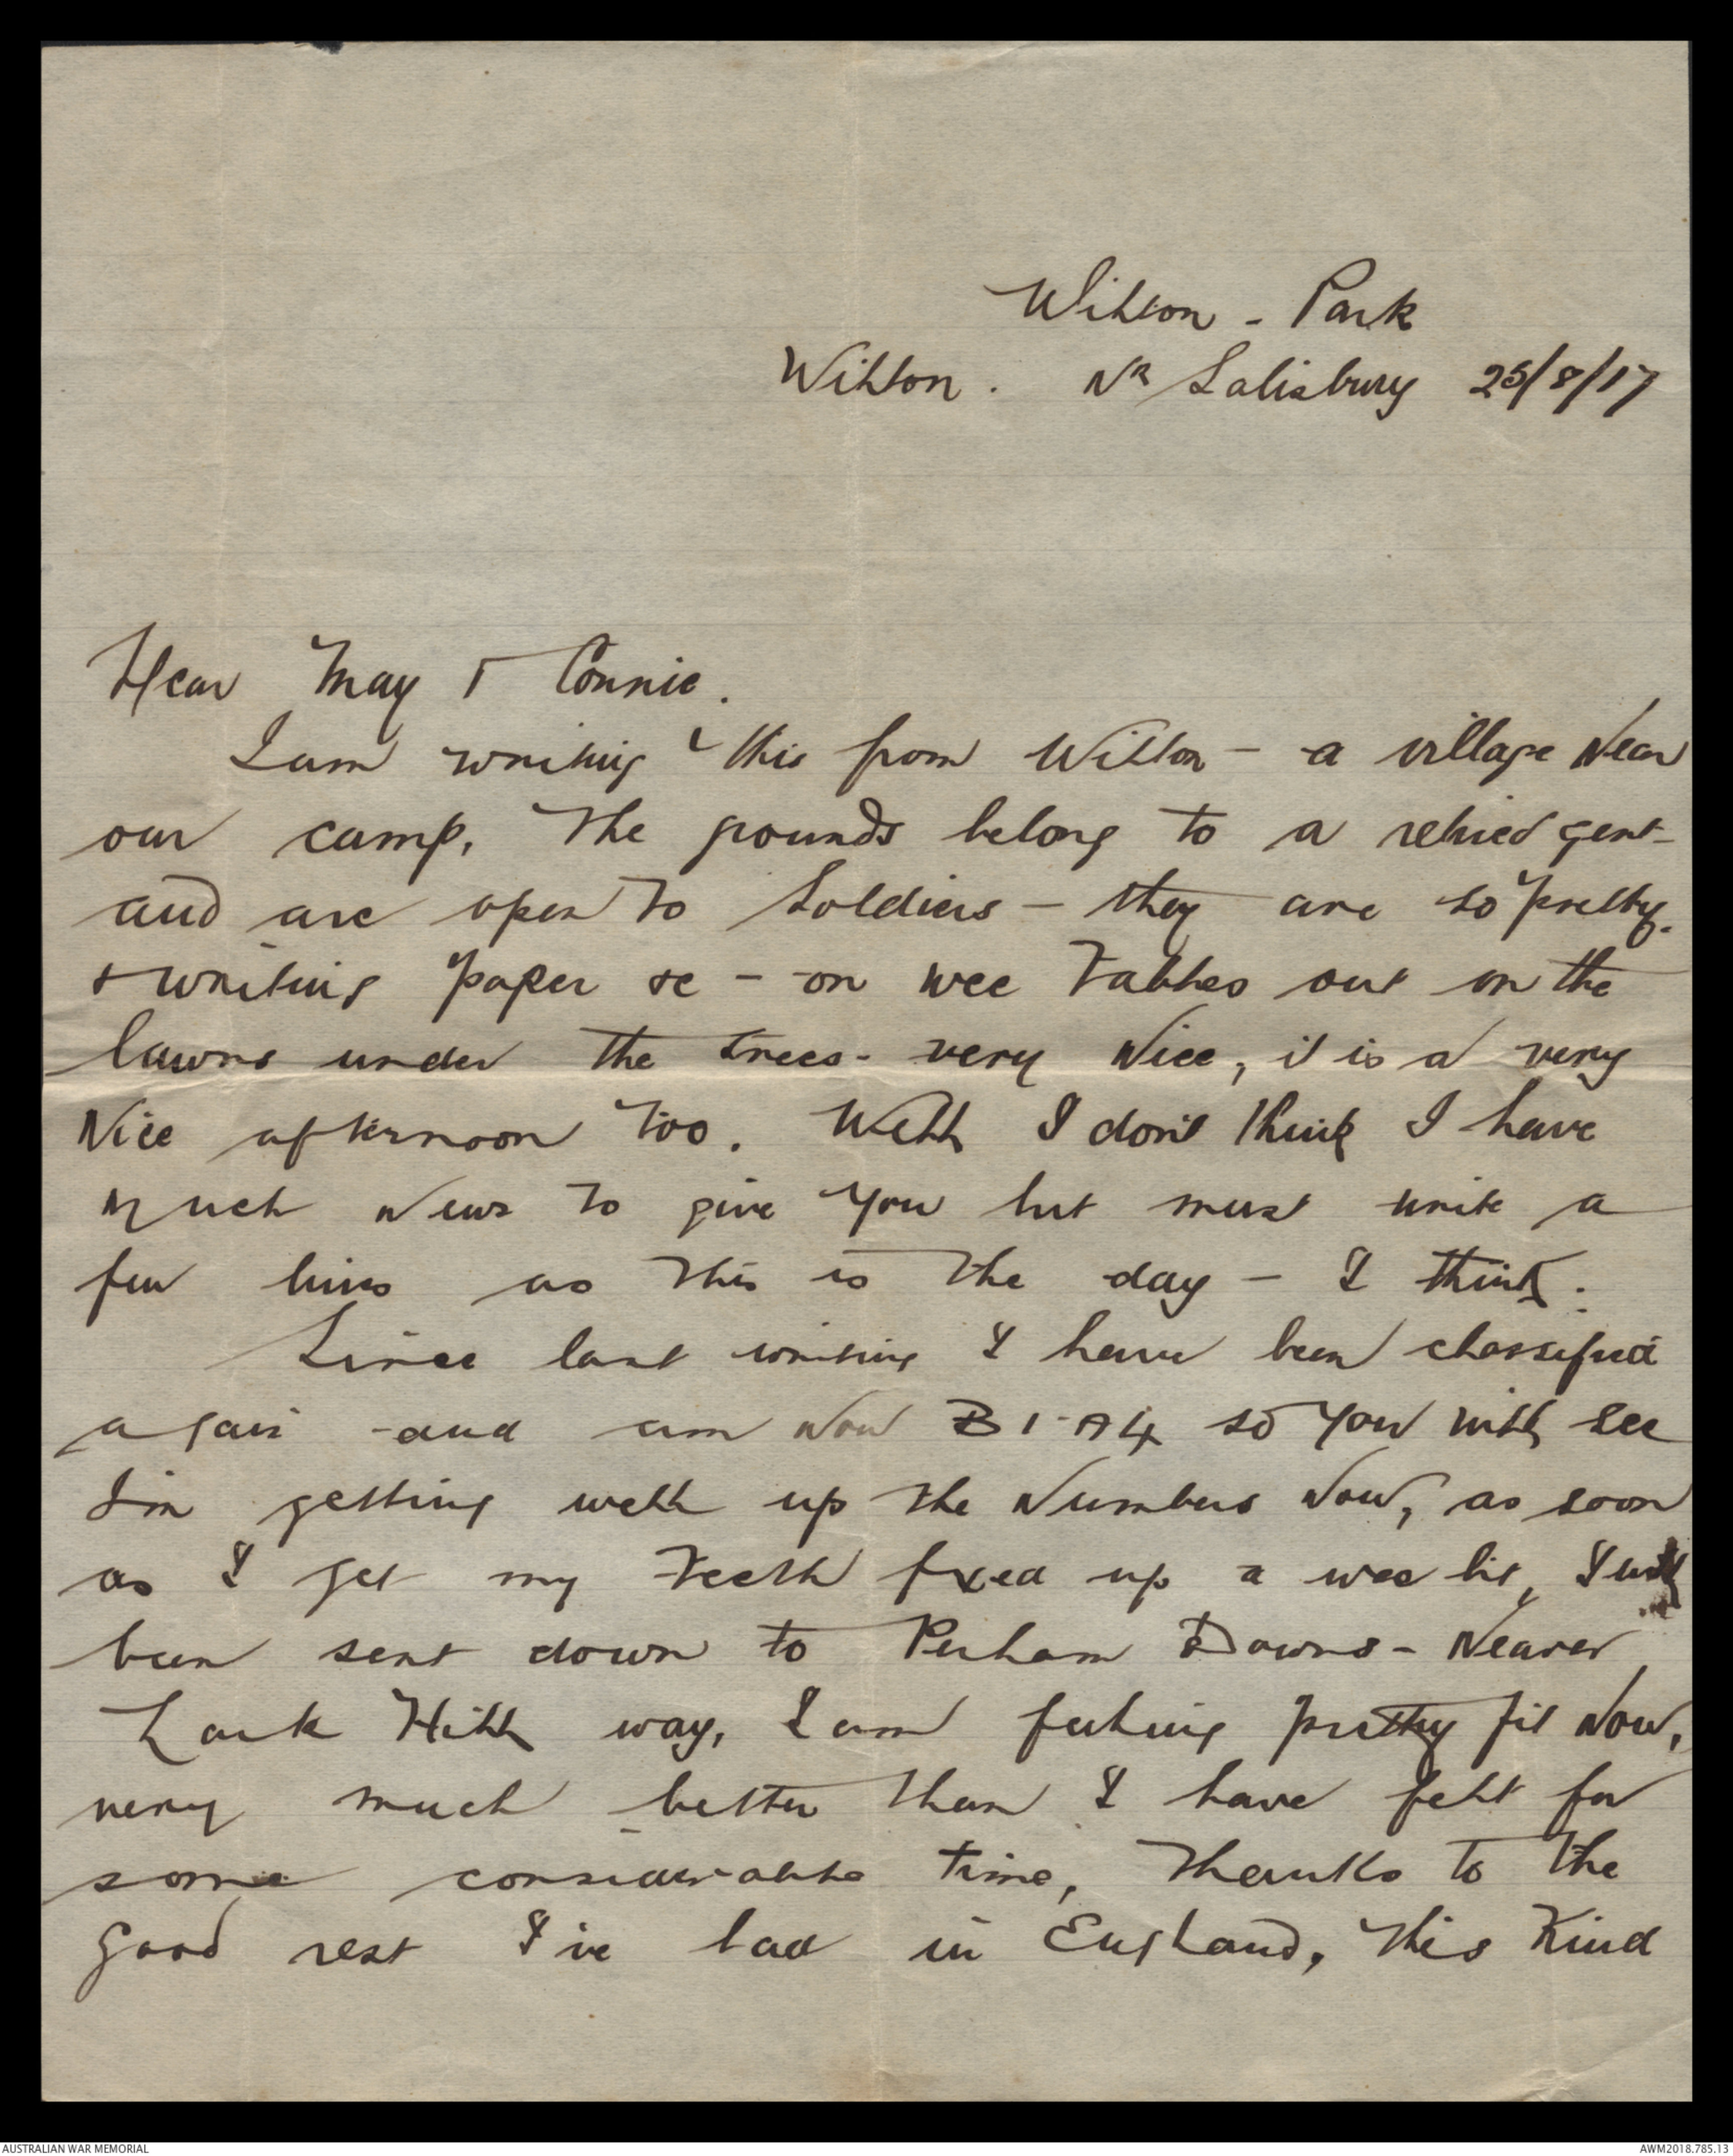 Wilton - Park
Wilton. Nr Salisbury 25/8/17
Dear May & Connie.
I am writing this from Wilton - a village near
our camp. The grounds belong to a retired gent-
and are open to soldiers - they are so pretty.
& writing paper &c - on wee tables out on the
lawns under the trees - very nice, it is a very
nice afternoon too. Well I don't think I have
much news to give you but must write a
few lines as this is the day - I think.
Since last writing I have been classified
again - and am now B1-A4 so you will see
I'm getting well up the numbers now, as soon
as I get my teeth fixed up a wee bit, I will
been sent down to Perham Downs - nearer
Lark Hill way, I am feeling pretty fit now,
very much better than I have felt for
some considerable time, thanks to the
good rest I've had in England, this kind
AUSTRALIAN WAR MEMORIAL
AWM2018.785.13